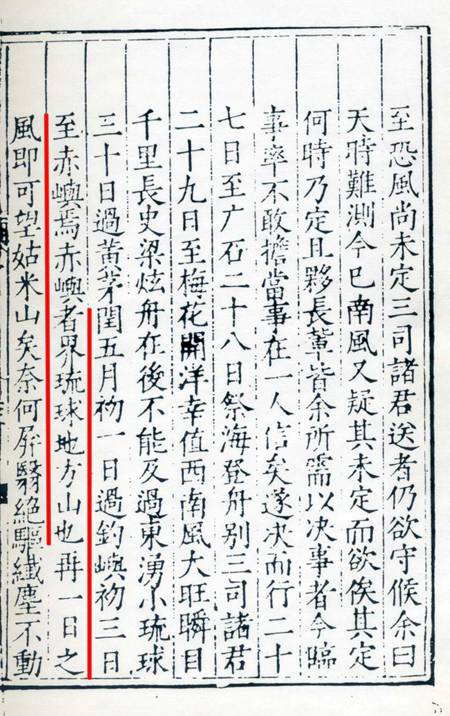 至恐風尚未定三司諸君送者仍欲守候余曰
天時難測今已南風又疑其未定而欲俟其定
何時乃定且夥長軰皆余所需以决事者今臨
事率不敢擔當事在一人信矣遂决而行二十
七日至广石二十八日祭海登舟别三司諸君
二十九日至梅花開洋幸值西南風大旺瞬目
千里長史梁炫舟在後不能及過東湧小琉球
三十日過黄茅閏五月初一日過釣嶼初三日
至赤嶼焉赤嶼者界琉球地方山也再一日之
風即可望姑米山矣奈何屏翳絶驅纎塵不動